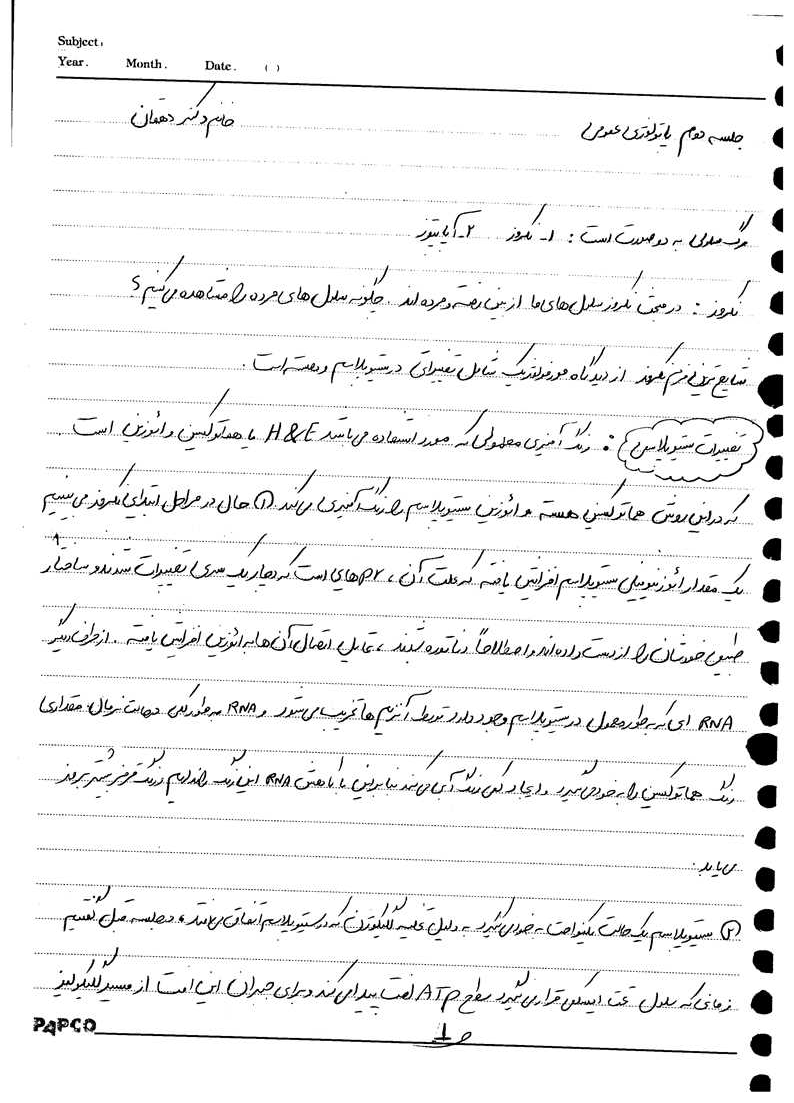 Subject:
Year. Month. Date. ( )
جلسه دوم پاتولوژی عمومی خانم دکتر دهقان
مرگ سلولی به دو صورت است : ۱- نکروز ۲- آپاپتوز
نکروز : در مبحث نکروز سلول های ما از بین رفته و مرده اند . چگونه سلول های مرده را مشاهده می کنیم ؟
شایع ترین فرم نکروز از دیدگاه مورفولوژیک شامل تغییراتی در سیتوپلاسم و هسته است .
تغییرات سیتوپلاسمی : رنگ آمیزی معمولی که مورد استفاده می باشد H&E یا هماتوکسین و ائوزین است
که در این روش هماتوکسین هسته و ائوزین سیتوپلاسم را رنگ آمیزی می کند ① حال در مراحل ابتدایی نکروز می بینیم
یک مقدار ائوزینوفیلی سیتوپلاسم افزایش یافته که علت آن ، pr های است که دچار یک سری تغییرات شدند و ساختار
طبیعی خودشان را از دست داده اند و اصطلاحاً دناتوره شدند ، تمایل اتصال آن ها به ائوزین افزایش یافته . از طرف دیگر
RNA ای که به طور معمول در سیتوپلاسم وجود دارد توسط آنزیم ها تخریب می شود و RNA به طور کلی در حالت نرمال مقداری
رنگ هماتوکسین را به خود می گیرد و ایجاد کمی رنگ آبی می کند بنابراین با کاهش RNA این رنگ را نداریم و رنگ قرمز بیشتر بروز
می یابد .
② سیتوپلاسم یک حالت یکنواخت به خود می گیرد به دلیل تخلیه گلیکوژن که در سیتوپلاسم اتفاق می افتد ، در جلسه قبل گفتیم
زمانی که سلول تحت ایسکمی قرار می گیرد سطح ATP افت پیدا می کند و برای جبران این افت از مسیر گلیکولیز
PAPCO ص 1